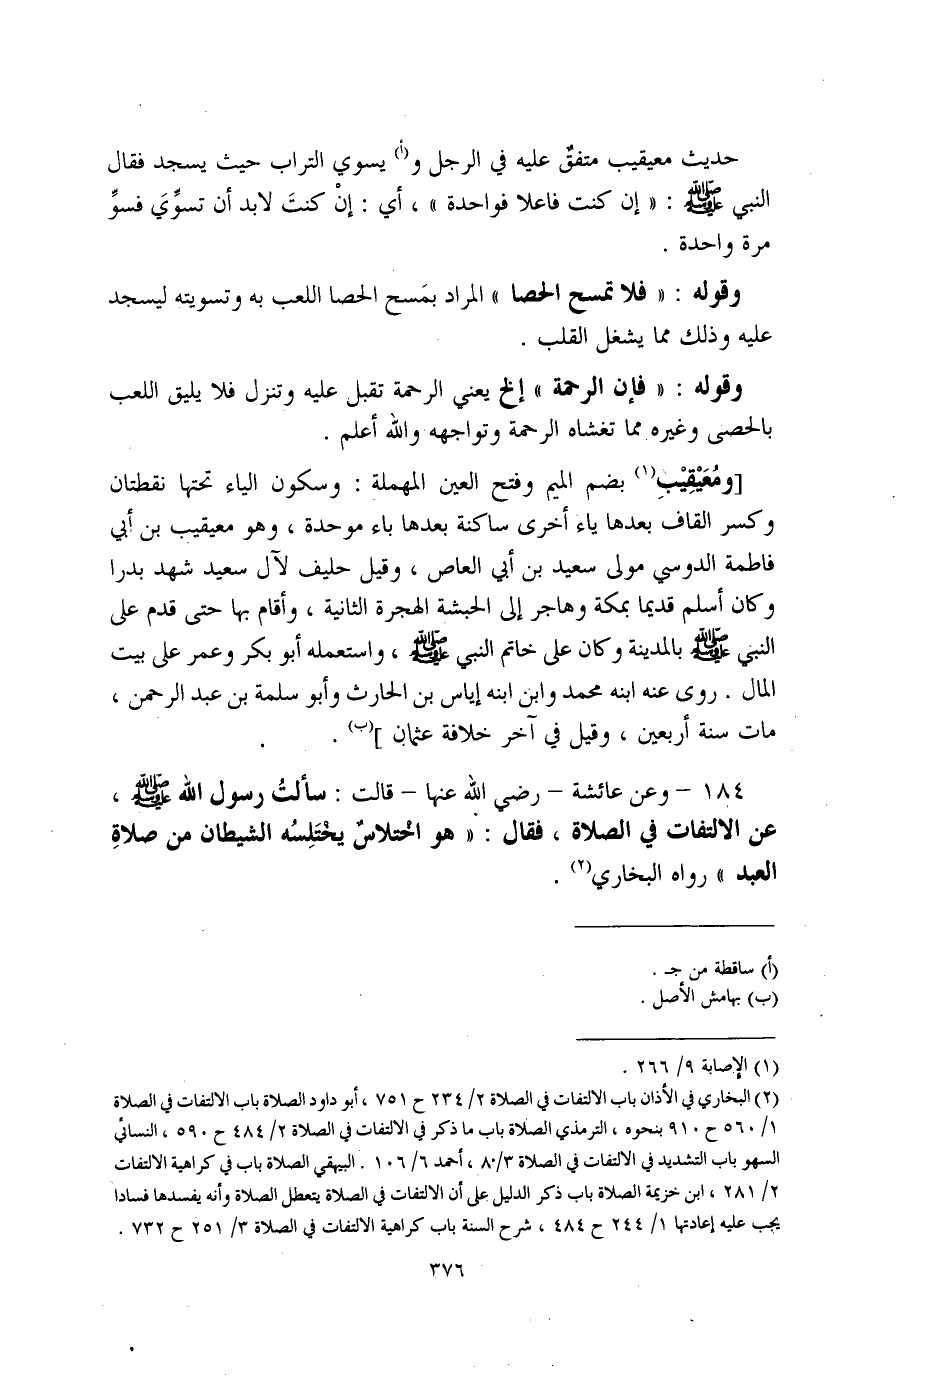 حديث معيقيب متفقٌ عليه في الرجل و(أ) يسوي التراب حيث يسجد فقال
النبي ﷺ : « إن كنت فاعلا فواحدة » ، أي : إنْ كنتَ لابد أن تسوِّيَ فسوِّ
مرة واحدة .
وقوله : « فلا تمسح الحصا » المراد بمَسح الحصا اللعب به وتسويته ليسجد
عليه وذلك مما يشغل القلب .
وقوله : « فإن الرحمة » إلخ يعني الرحمة تقبل عليه وتنزل فلا يليق اللعب
بالحصى وغيره مما تغشاه الرحمة وتواجهه والله أعلم .
[ومُعَيْقِيْبِ(١) بضم الميم وفتح العين المهملة : وسكون الياء تحتها نقطتان
وكسر القاف بعدها ياء أخرى ساكنة بعدها باء موحدة ، وهو معيقيب بن أبي
فاطمة الدوسي مولى سعيد بن أبي العاص ، وقيل حليف لآل سعيد شهد بدرا
وكان أسلم قديما بمكة وهاجر إلى الحبشة الهجرة الثانية ، وأقام بها حتى قدم على
النبي ﷺ بالمدينة وكان على خاتم النبي ﷺ ، واستعمله أبو بكر وعمر على بيت
المال . روى عنه ابنه محمد وابن ابنه إياس بن الحارث وأبو سلمة بن عبد الرحمن ،
مات سنة أربعين ، وقيل في آخر خلافة عثمان ](ب) .
١٨٤ - وعن عائشة - رضي الله عنها - قالت : سألتُ رسول الله ﷺ ،
عن الالتفات في الصلاة ، فقال : « هو اخْتلاسٌ يخْتَلِسُه الشيطان من صلاةِ
العبد » رواه البخاري(٢) .
(أ) ساقطة من جـ .
(ب) بهامش الأصل .
(١) الإصابة ٩/ ٢٦٦ .
(٢) البخاري في الأذان باب الالتفات في الصلاة ٢/ ٢٣٤ ح ٧٥١ ، أبو داود الصلاة باب الالتفات في الصلاة
١/ ٥٦٠ ح ٩١٠ بنحوه ، الترمذي الصلاة باب ما ذكر في الالتفات في الصلاة ٢/ ٤٨٤ ح ٥٩٠ ، النسائي
السهو باب التشديد في الالتفات في الصلاة ٣/ ٨٠ ، أحمد ٦/ ١٠٦ . البيهقي الصلاة باب في كراهية الالتفات
٢/ ٢٨١ ، ابن خزيمة الصلاة باب ذكر الدليل على أن الالتفات في الصلاة يتعطل الصلاة وأنه يفسدها فسادا
يجب عليه إعادتها ١/ ٢٤٤ ح ٤٨٤ ، شرح السنة باب كراهية الالتفات في الصلاة ٣/ ٢٥١ ح ٧٣٢ .
٣٧٦